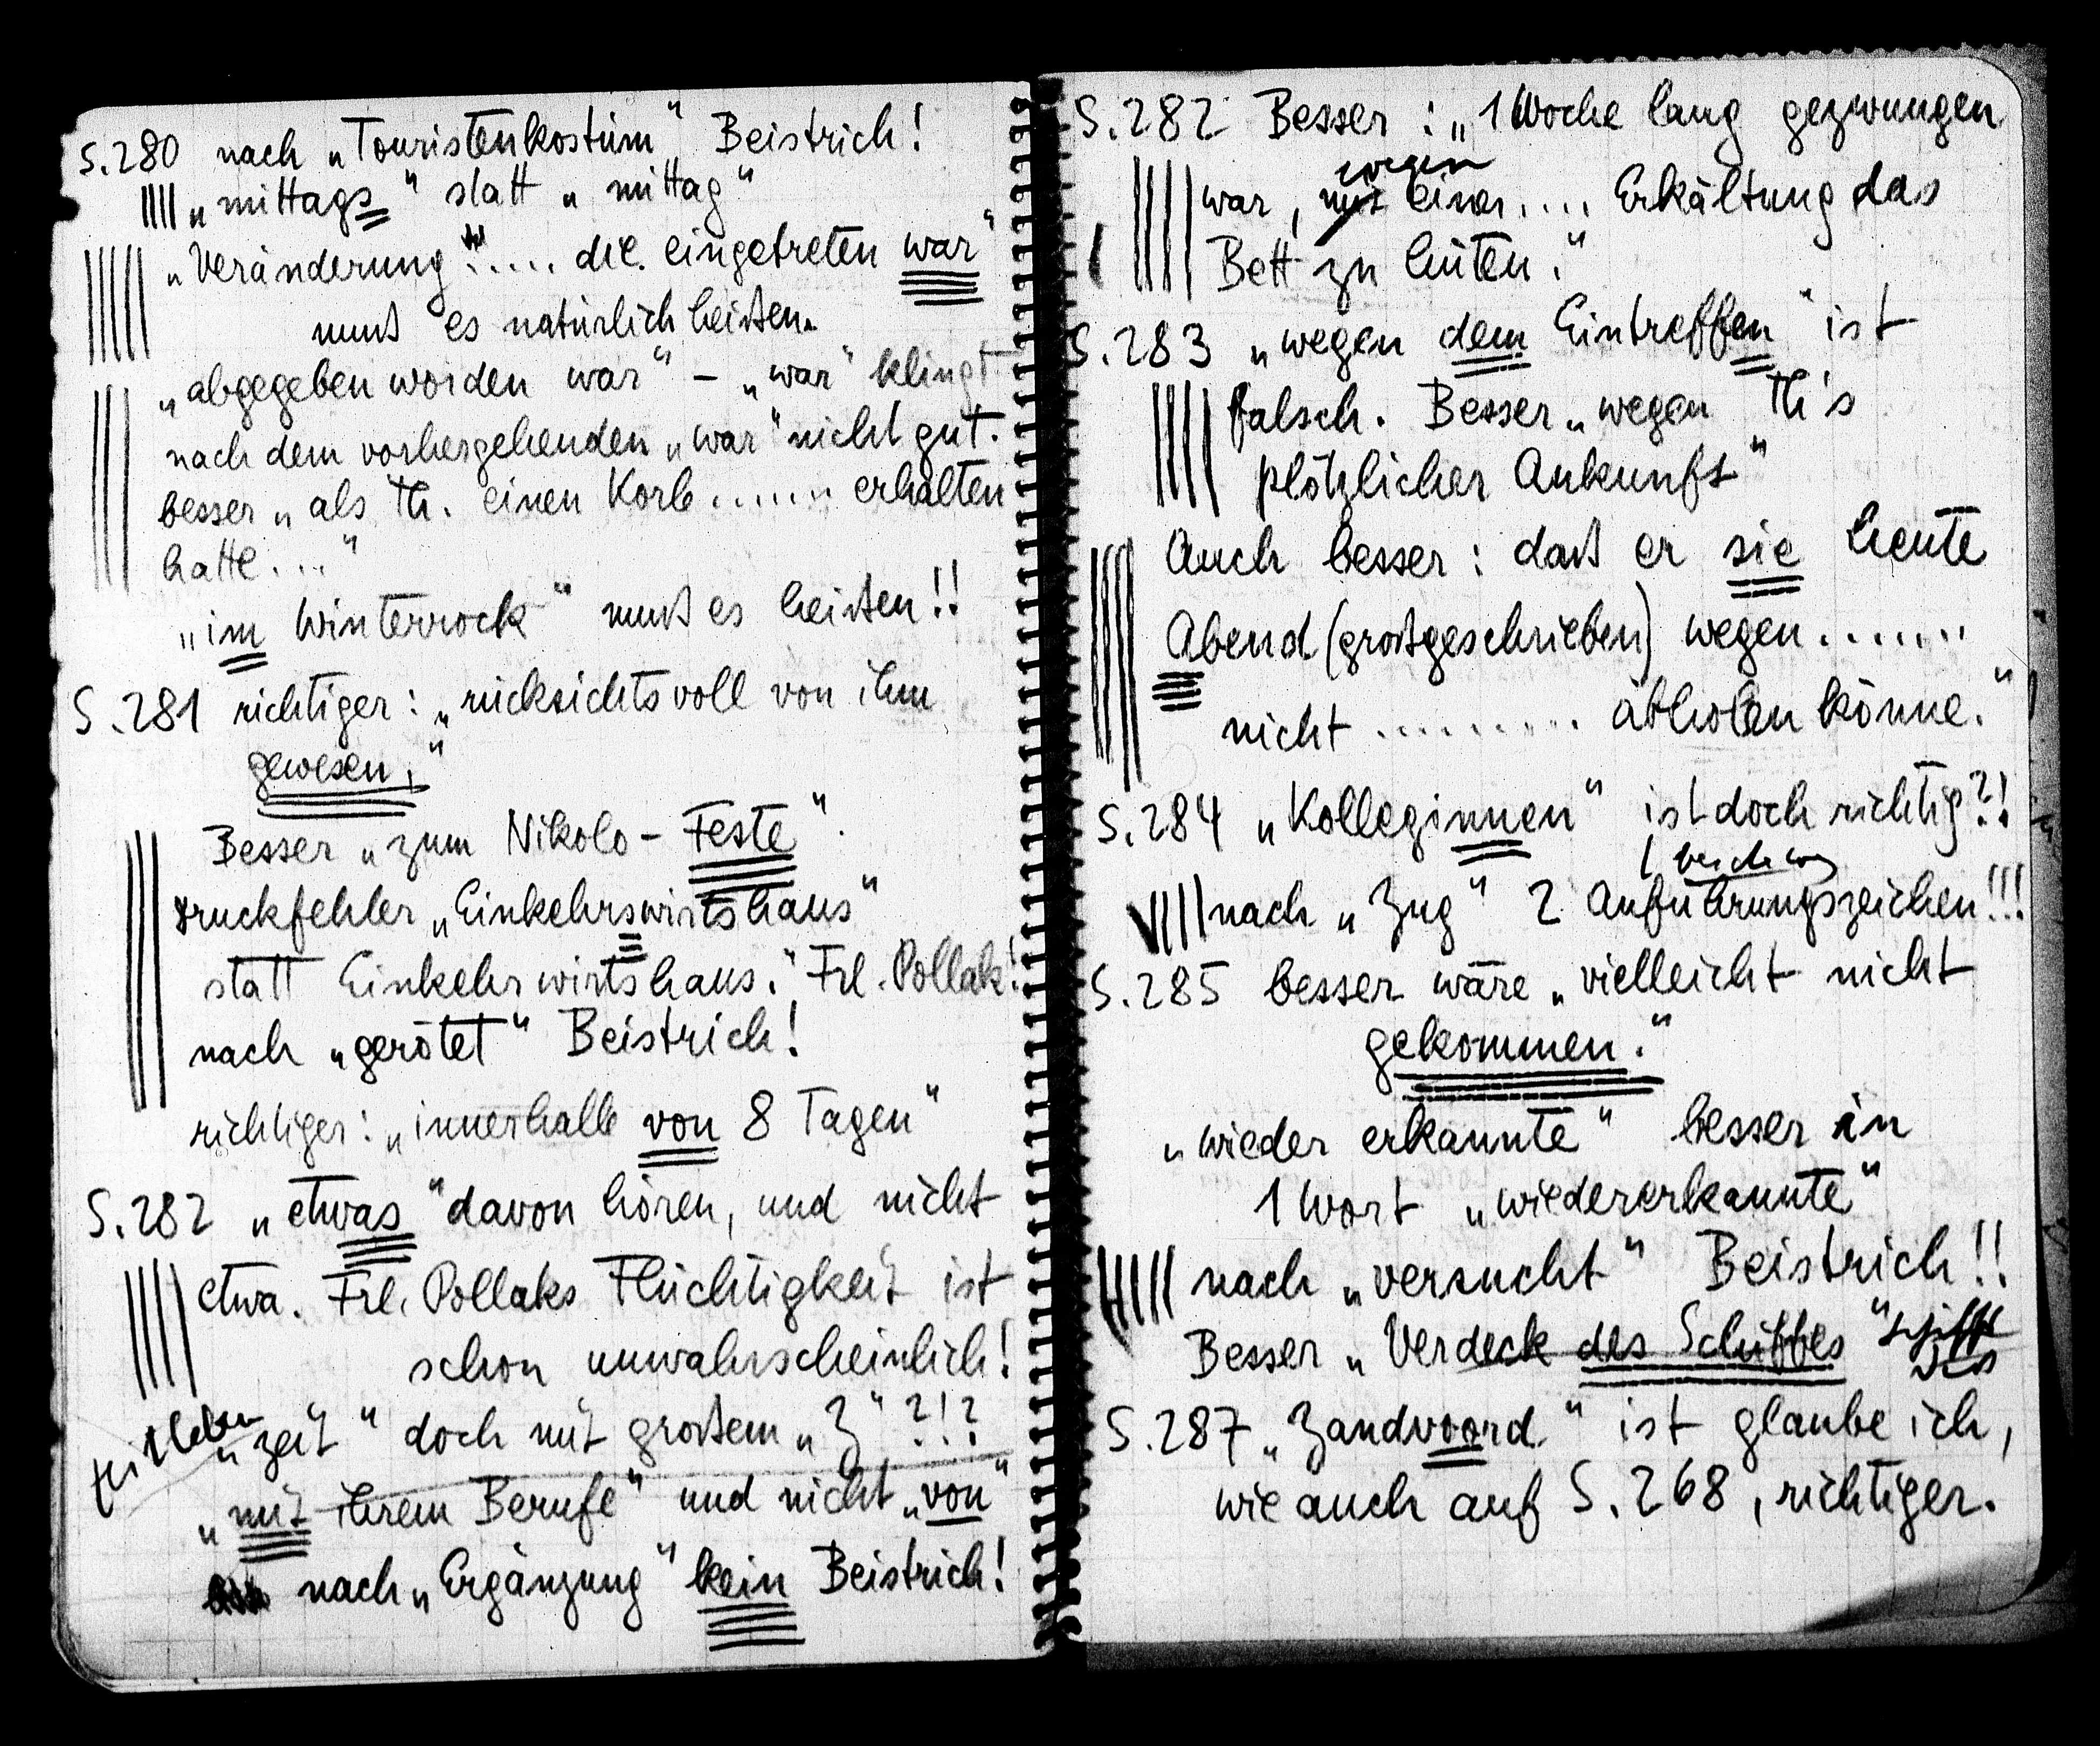 S.280 nach „Touristenkostüm“ Beistrich!
„mittags“ statt „mittag“
„Veränderung“..... die eingetreten war“
muß es natürlich heißen.
„abgegeben worden war“ – „war“ klingt
nach dem vorhergehenden „war“ nicht gut.
besser „als Th. einen Korb ...... erhalten
hatte...“
„im Winterrock“ muß es heißen!!
S.281 richtiger: „rücksichtsvoll von ihm
gewesen,“
Besser „zum Nikolo-Feste“.
Druckfehler „Einkehrswirtshaus“
statt Einkehrwirtshaus.“ Frl. Pollak!
nach „gerötet“ Beistrich!
richtiger: „innerhalb von 8 Tagen“
S.282 „etwas“ davon hören, und nicht
etwa. Frl. Pollaks Flüchtigkeit ist
schon unwahrscheinlich!
„zeit“ doch mit großem „Z“?!?
„mit ihrem Berufe“ und nicht „von“
nach „Ergänzung“ kein Beistrich!
S.282 Besser: „1 Woche lang gezwungen
wegen
war, mit einer.... Erkältung das
Bett zu hüten.“
S.283 „wegen dem Eintreffen“ ist
falsch. Besser „wegen Th's
plötzlicher Ankunft“
Auch besser: daß er sie heute
Abend (großgeschrieben) wegen.......
nicht ......... abholen könne.“
S.284 „Kolleginnen“ ist doch richtig?!
nach „Zug“ 2 Anführungszeichen!!!
S.285 besser wäre „vielleicht nicht
gekommen.“
„wieder erkannte“ besser in
1 Wort „wiedererkannte“
nach „versucht“ Beistrich!!
Besser „Verdeck des Schiffes“
S.287 „Zandvoord“ ist glaube ich,
wie auch auf S.268, richtiger.